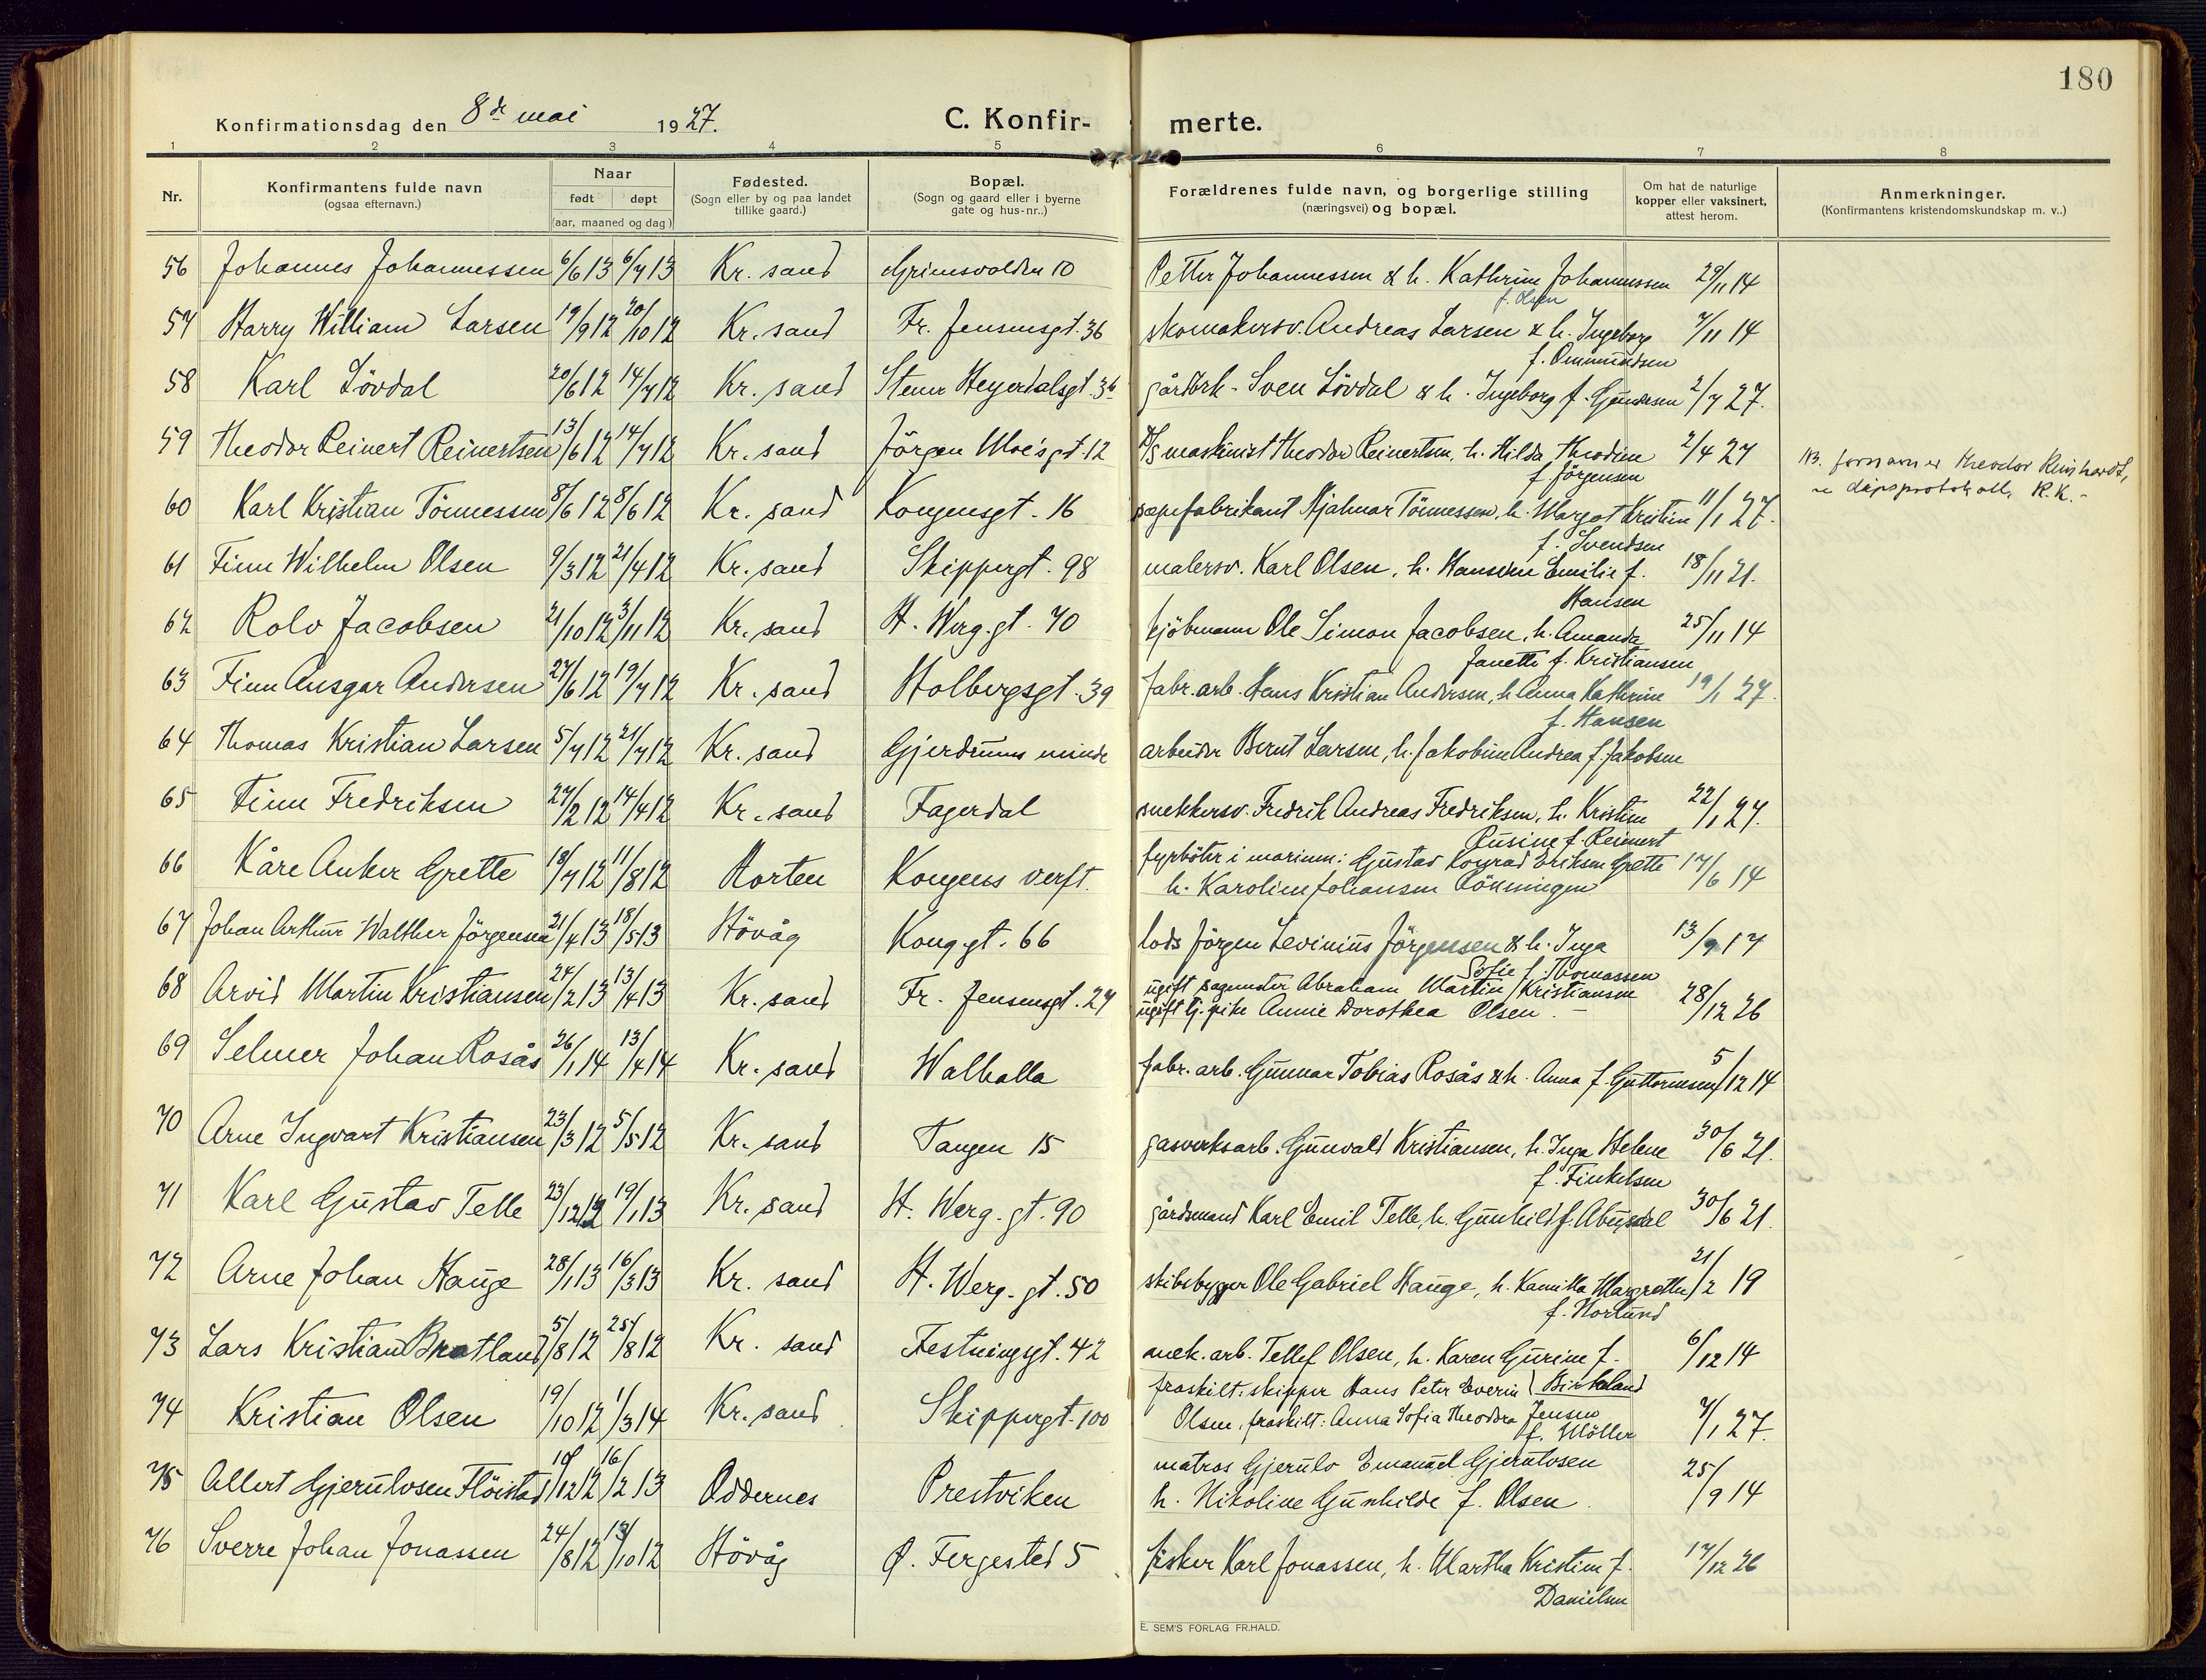 180
Konfirmationsdag den 8de mai 1927.
C. Konfir- merte.
1 2 3 4 5 6 7 8
Nr. Konfirmantens fulde navn (ogsaa efternavn.) Naar født døpt (aar, maaned og dag) Fødested. (Sogn eller by og paa landet tillike gaard.) Bopæl. (Sogn og gaard eller i byerne gate og hus-nr..) Forældrenes fulde navn, og borgerlige stilling (næringsvei) og bopæl. Om hat de naturlige kopper eller vaksinert, attest herom. Anmerkninger. (Konfirmantens kristendomskundskap m. v..)
56 Johannes Johannessen 6/6 13 6/7 13 Kr. sand Grimsvolden 10 Petter Johannessen & h. Kathrine Johannessen 29/11 14
f. Olsen
57 Harry William Larsen 19/9 12 20/10 12 Kr. sand Fr. Jensensgt. 36 skomakersv. Andreas Larsen & h. Ingeborg 7/11 14
f. Ommundsen
58 Karl Lövdal 20/6 12 14/7 12 Kr. sand Stener Heyerdalsgt. 36 gårdbrk. Sven Lövdal & h. Ingeborg f. Gundersen 2/7 27.
59 Theodor Reinert Reinertsen 13/6 12 14/7 12 Kr. sand Jörgen Moe's gt. 12 D/S maskinist Theodor Reinertsen, h. Hilda Theodine 2/4 27 NB. fornavn er Theodor Reinhardt,
f. Jörgensen
døpsprotokoll. R.K.-
60 Karl Kristian Tönnessen 8/6 12 8/6 12 Kr. sand Kongensgt. 16 sæpefabrikant Hjalmar Tönnessen, h. Margot Kristine 11/1 27.
f. Svendsen
61 Finn Wilhelm Olsen 9/3 12 21/4 12 Kr. sand Skippergt. 98 malersv. Karl Olsen, h. Hansine Emilie f. 18/11 21.
Hansen
62 Rolv Jacobsen 21/10 12 3/11 12 Kr. sand H. Werg. gt. 70 kjöbmann Ole Simon Jacobsen, h. Amanda 25/11 14
Janette f. Kristiansen
63 Finn Ansgar Andersen 27/6 12 19/7 12 Kr. sand Holbergsgt. 39 fabr. arb. Hans Kristian Andersen, h. Anna Kathrine 19/1 27.
f. Hansen
64 Thomas Kristian Larsen 5/7 12 21/7 12 Kr. sand Gjerdrums minde arbeider Bernt Larsen, h. Jakobine Andrea f. Jakobsen
65 Finn Fredriksen 27/2 12 14/4 12 Kr. sand Fagerdal snekkersv. Fredrik Andreas Fredriksen, h. Kristine 22/1 27.
Rusine f. Reinert
66 Kåre Anker Grette 18/7 12 11/8 12 Horten Kongens verft. fyrböter i marinen: Gustav Konrad Eriksen Grette 17/6 14
h. Karoline Johansen Rönningen
67 Johan Arthur Walther Jörgensen 21/4 13 18/5 13 Hövåg Kong. gt. 66 lods Jörgen Levinius Jörgensen & h. Inga 13/9 17
Sofie f. Thomassen
68 Arvid Martin Kristiansen 24/2 13 13/4 13 Kr. sand Fr. Jensensgt. 27 ugift sagmester Abraham Martin Kristiansen 28/12 26
ugift tj. pike Annie Dorothea Olsen. -
69 Selmer Johan Rosås 26/1 14 13/4 14 Kr. sand Walhalla fabr. arb. Gunnar Tobias Rosås & h. Anna f. Guttormsen 5/12 14
70 Arne Ingvart Kristiansen 23/3 12 5/5 12 Kr. sand Tangen 15 gasverksarb. Gunvald Kristiansen, h. Inga Helene 30/6 21.
f. Finkelsen
71 Karl Gustav Telle 23/12 12 19/1 13 Kr. sand H. Werg. gt. 90 gårdsmand Karl Emil Telle, h. Gunhild f. Abusdal 30/6 21.
72 Arne Johan Hauge 28/1 13 16/3 13 Kr. sand H. Werg. gt. 50 skibsbygger Ole Gabriel Hauge, h. Kamilla Margrethe 21/2 19
f. Norlund
73 Lars Kristian Bratland 5/8 12 25/8 12 Kr. sand Festningsgt. 42 mek. arb. Tellef Olsen, h. Karen Gurine f. 6/12 14
Birkeland
74 Kristian Olsen 19/10 12 1/3 14 Kr. sand Skippergt. 100 fraskilt: skipper Hans Peter Everin
Olsen, fraskilt: Anna Sofia Theodora Jensen 7/1 27.
f. Möller
75 Allert Gjerulvsen Flöistad 10/12 12 16/2 13 Oddernes Prestviken matros Gjerulv Emanuel Gjerulvsen 25/9 14
h. Nikoline Gunhilde f. Olsen.
76 Sverre Johan Jonassen 24/8 12 13/10 12 Hövåg Ø. Fergested 5 fisker Karl Jonassen, h. Martha Kristine f. 17/12 26
Danielsen
E. SEM'S FORLAG FR.HALD.